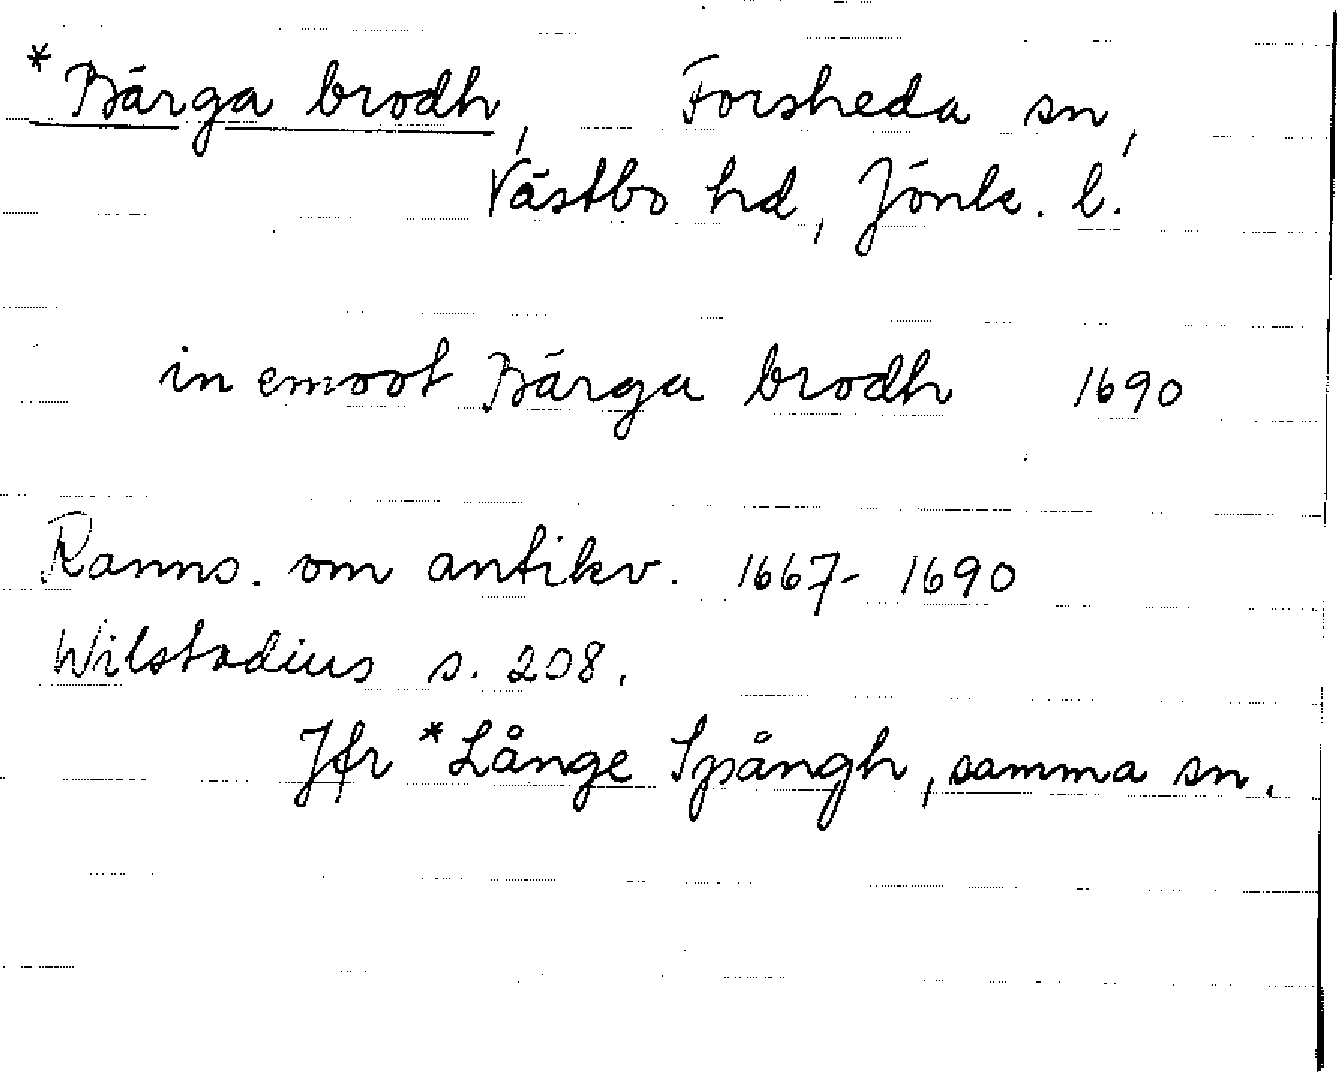 *Bärga brodh, Forsheda sn,
Västbo hd, Jönk. l.
in emoot Bärga brodh 1690
Ranns. om antikv. 1667-1690
Wilstadius s. 208.
Jfr *Långe Spångh, samma sn.